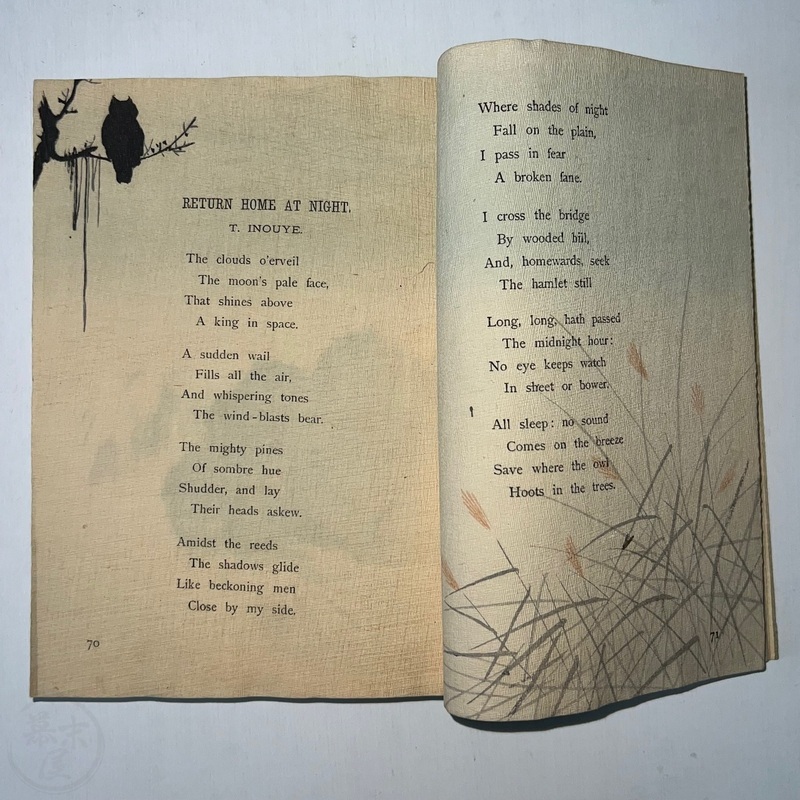 RETURN HOME AT NIGHT.
T. INOUYE.
The clouds o'erveil
The moon's pale face,
That shines above
A king in space.
A sudden wail
Fills all the air,
And whispering tones
The wind-blasts bear.
The mighty pines
Of sombre hue
Shudder, and lay
Their heads askew.
Amidst the reeds
The shadows glide
Like beckoning men
Close by my side.
70
Where shades of night
Fall on the plain,
I pass in fear
A broken fane.
I cross the bridge
By wooded hill,
And, homewards, seek
The hamlet still
Long, long, hath passed
The midnight hour:
No eye keeps watch
In street or bower.
All sleep: no sound
Comes on the breeze
Save where the owl
Hoots in the trees.
71
幕末屋